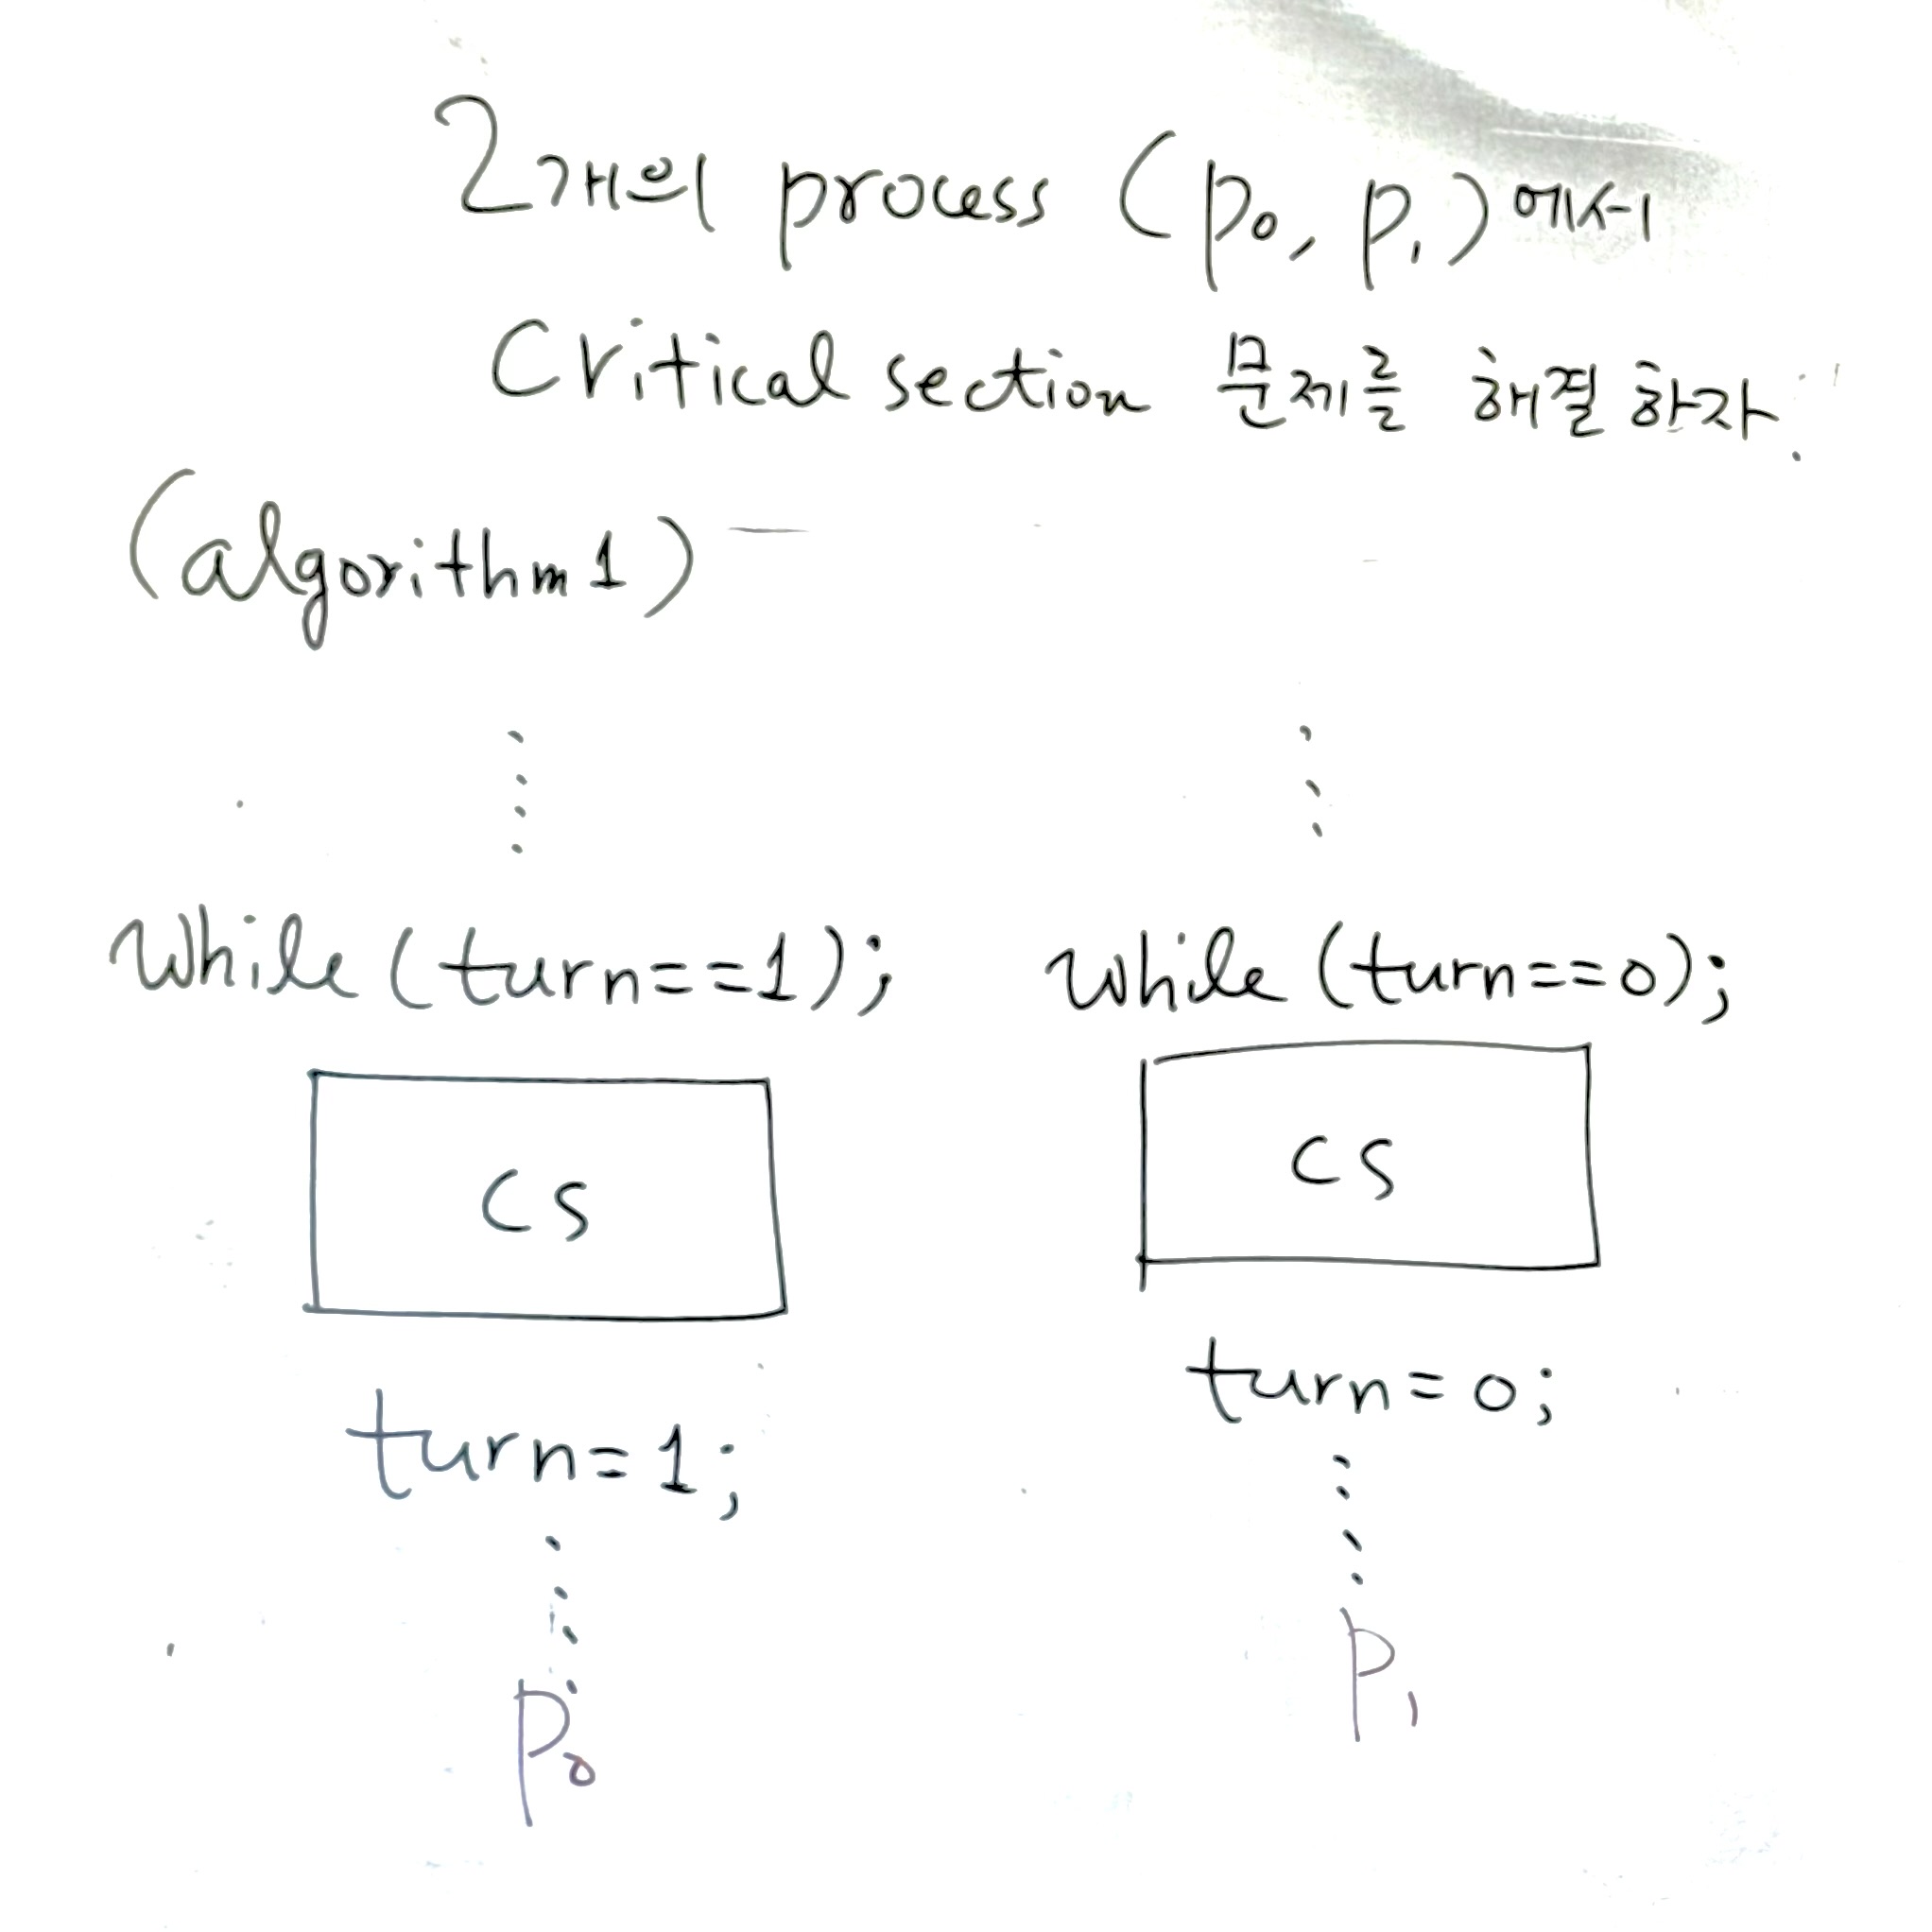 2개의 process (p0, p1)에서
Critical section 문제를 해결하자.
(algorithm1)
while (turn==1);
CS
turn=1;
P0
while (turn==0);
CS
turn=0;
P1